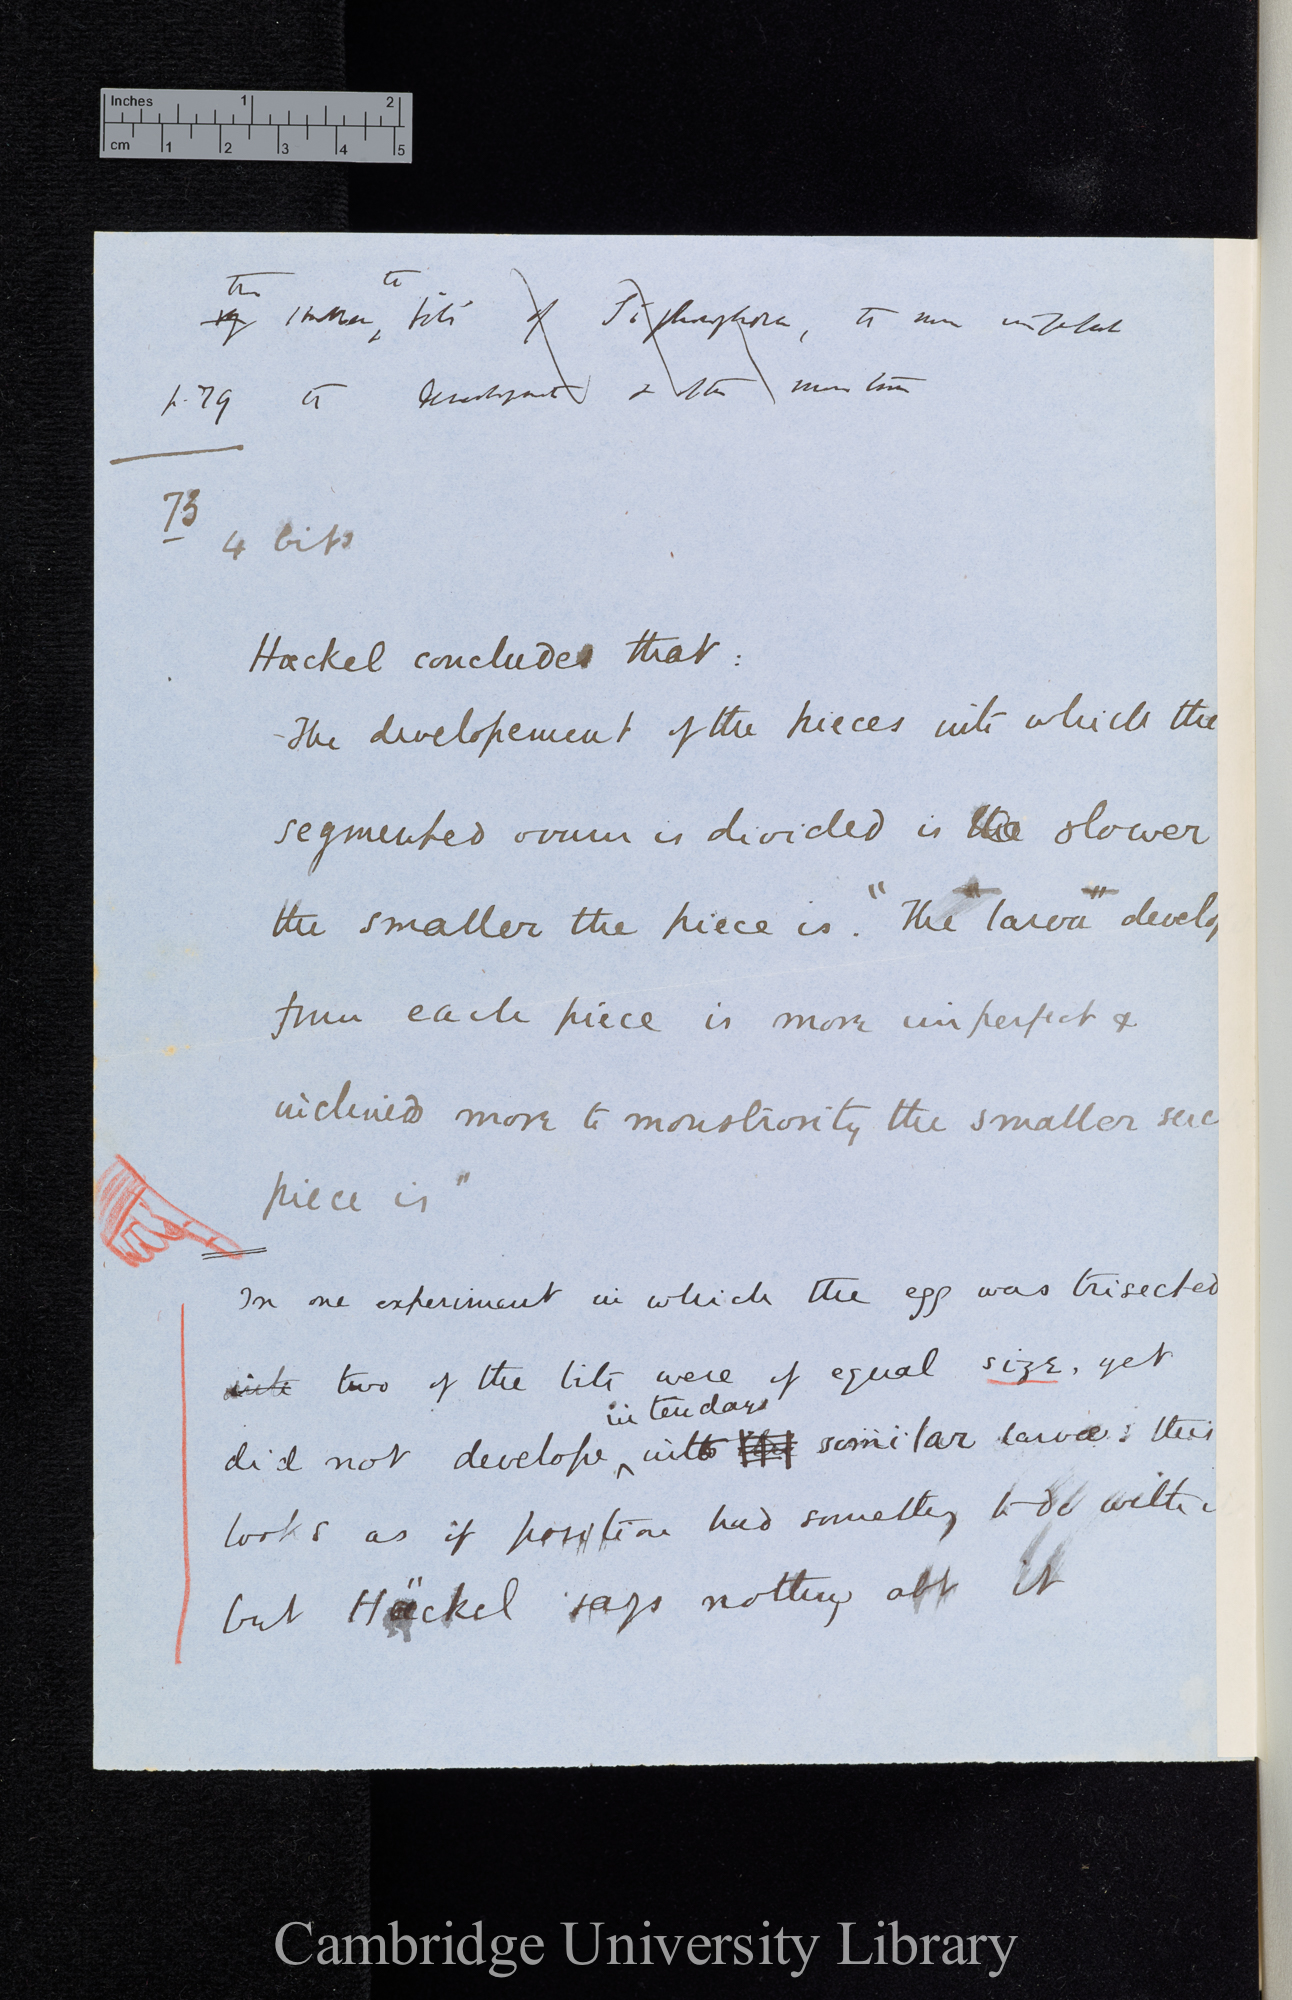 Inches 1 2
cm 1 2 3 4 5
the the
smaller, bits of Siphonophora, the more imperfect
p. 79 the development & the monstrous
73
4 bits
Hæckel concludes that:
The developement of the pieces into which the
segmented ovum is divided is the slower
the smaller the piece is. "The "larva" develop
from each piece is more imperfect &
inclined more to monstrosity the smaller suc
piece is"
In one experiment in which the egg was trisected
into two of the bits were of equal size, yet
in ten days
did not develope into similar larvæ; this
looks as if position had something to do with i
but Häckel says nothing abt it
Cambridge University Library